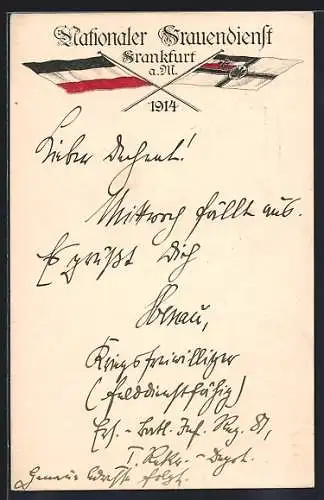 Nationaler Frauendienst
Frankfurt
a.M.
1914
Lieber Dechent!
Mittwoch fällt aus.
Es grüßt Dich
Kriegsfreiwilliger
(felddienstfähig)
Ers.-Batl. Inf. Reg. 81,
I. Rekr.-Depot.
Genaue Adresse folgt.